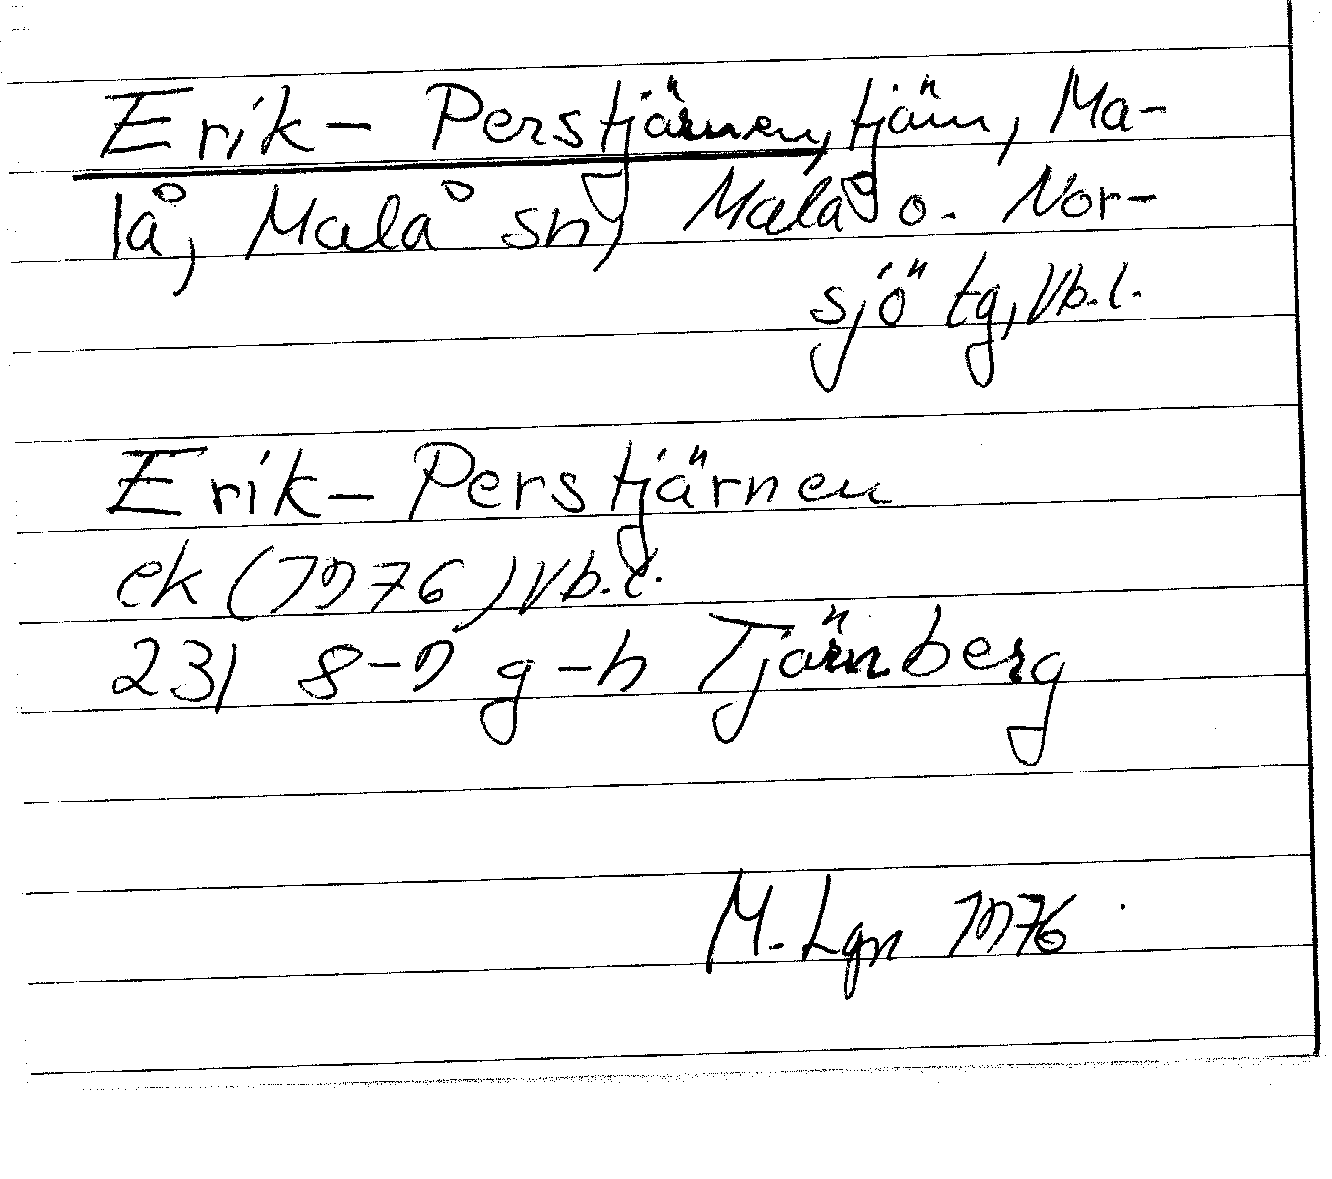 Erik-Perstjärnen, tjärn, Ma-
lå, Malå sn, Malå o. Nor-
sjö tg, Vb.l.
Erik-Perstjärnen
ek (1976) Vb.l.
23I 8-9 g-h Tjärnberg
M. Lgn 1976